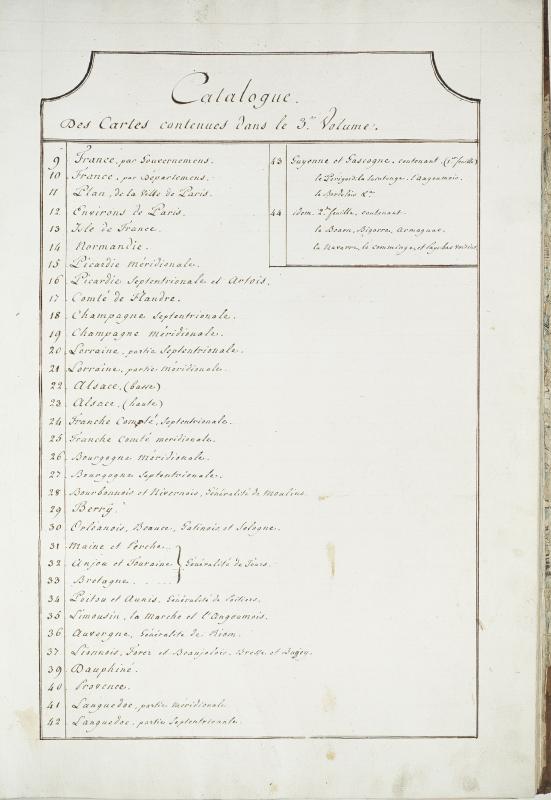 Catalogue.
Des Cartes contenues dans le 3.e Volume.
9 France, par Gouvernemens.
10 France, par Départemens.
11 Plan, de la Ville de Paris.
12 Environs de Paris.
13 Isle de France.
14 Normandie.
15 Picardie méridionale.
16 Picardie Septentrionale et Artois.
17 Comté de Flandre.
18 Champagne Septentrionale.
19 Champagne méridionale.
20 Lorraine, partie Septentrionale.
21 Lorraine, partie méridionale.
22 Alsace, (basse)
23 Alsace, (haute)
24 Franche Comté, Septentrionale.
25 Franche Comté méridionale.
26 Bourgogne méridionale.
27 Bourgogne Septentrionale.
28 Bourbonnois et Nivernois, Généralité de Moulins.
29 Berry.
30 Orléanois, Beauce, Gatinois, et Sologne.
31 Maine et Perche
32 Anjou et Touraine Généralité de Tours.
33 Bretagne . . . . .
34 Poitou et Aunis, Généralité de Poitiers.
35 Limousin, la Marche et l'Angoumois.
36 Auvergne, Généralité de Riom.
37 Lionnois, Forez et Beaujolois, Bresse et Bugey.
39 Dauphiné.
40 Provence.
41 Languedoc, partie méridionale
42 Languedoc, partie Septentrionale.
43 Guyenne et Gascogne, contenant (1.re feuille)
le Périgord, la Saintonge, l'Angoumois.
le Bordelois &.a
44 idem. 2.e feuille, contenant.
le Bearn, Bigorre, Armagnac.
la Navarre, le Comminge, et Pays bas voisins.